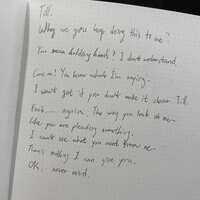 Till.
Why do you keep doing this to me?
You mean holding hands? I don't understand.
Come on! You know what I'm saying.
I won't get it if you don't make it clear Till.
Fuck...... again. The way you look at me-
like you are pleading something.
I can't see what you want from me
There's nothing I can give you.
OK, never mind.